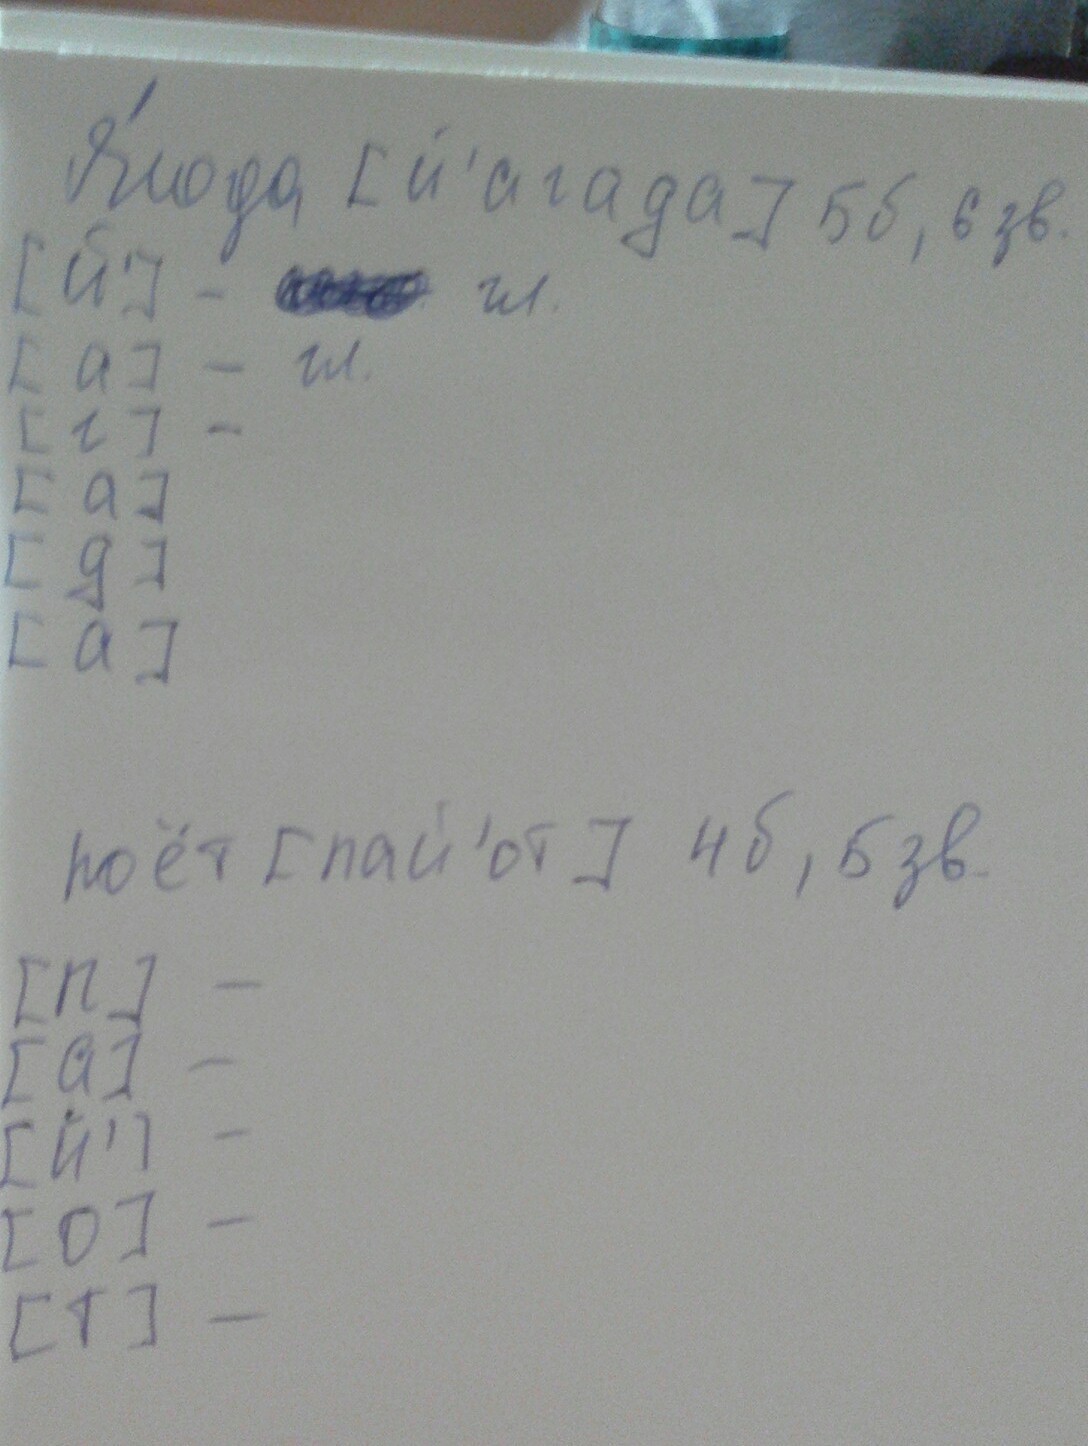 Я́года [й'агада] 5б, 6 зв.
[й'] - гл.
[а] - гл.
[г] -
[а]
[д]
[а]
поёт [пай'от] 4б, 5 зв.
[п] -
[а] -
[й'] -
[о] -
[т] -